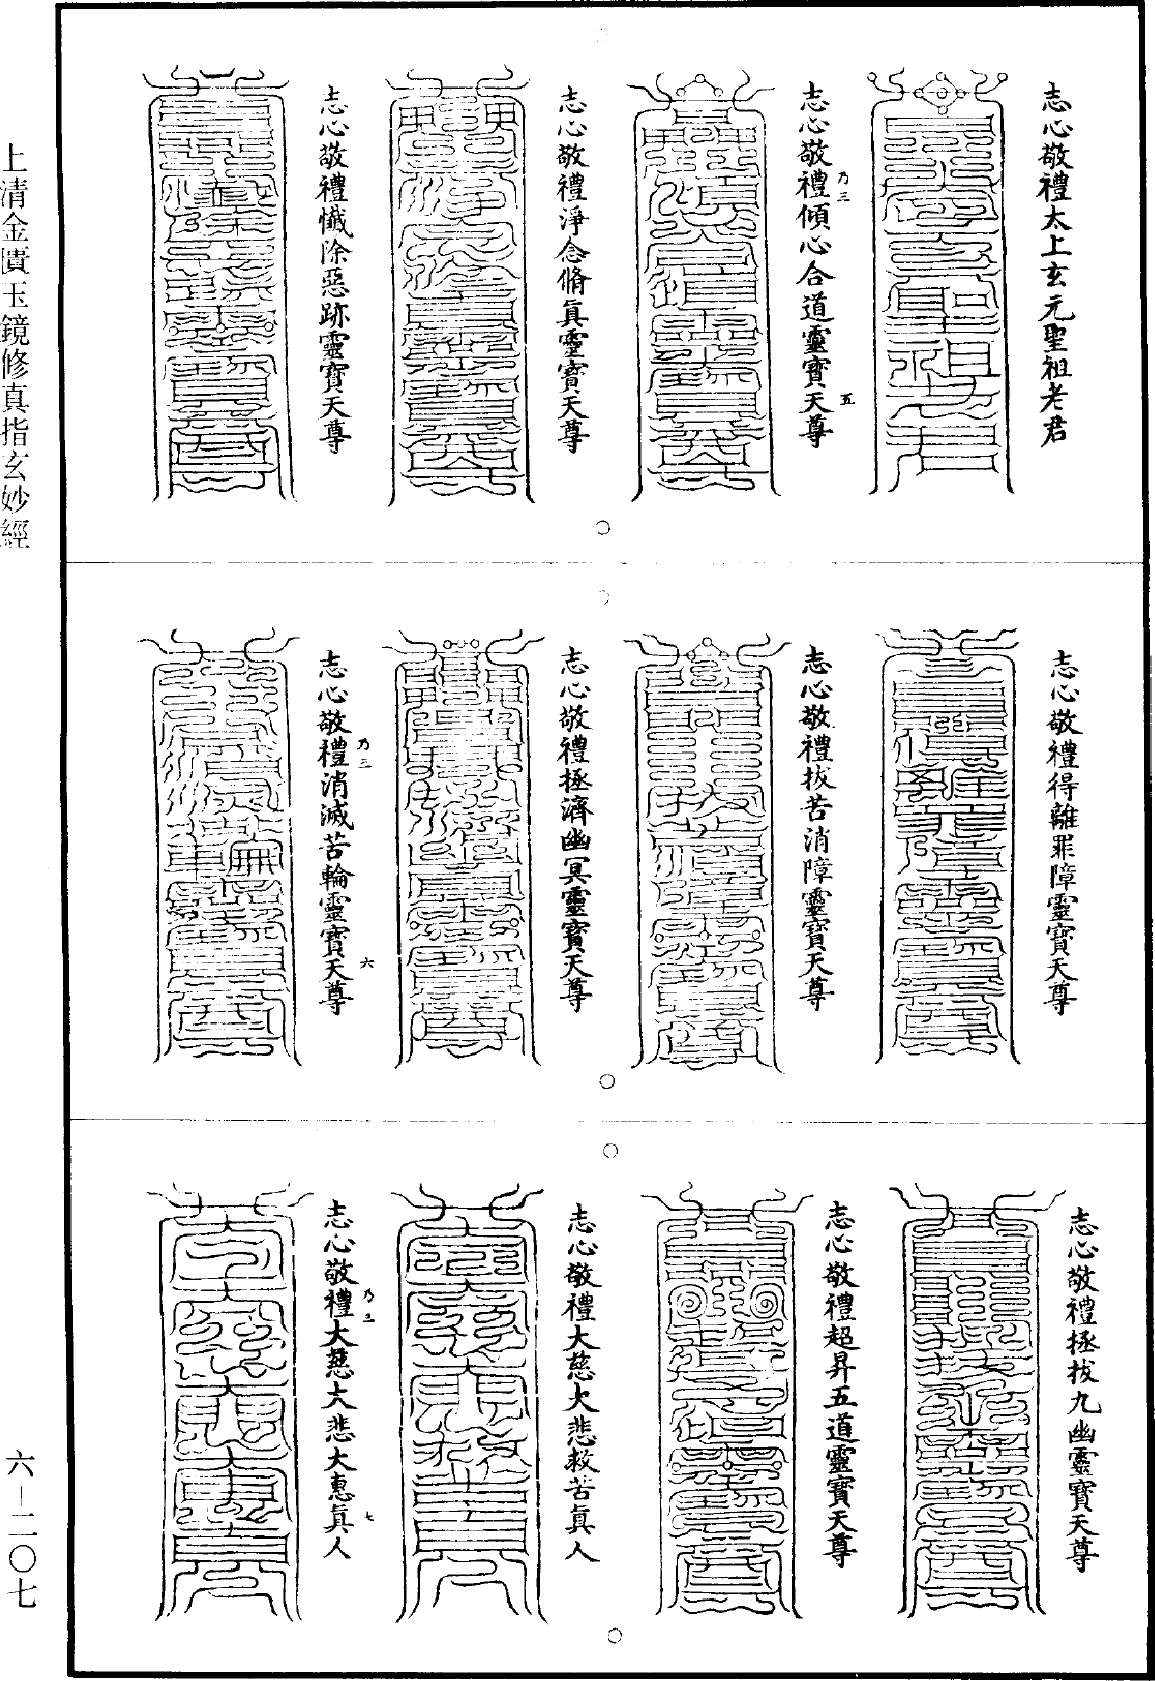 志心敬禮太上玄元聖祖老君
乃三
五
志心敬禮傾心合道靈寶天尊
志心敬禮淨念脩眞靈寶天尊
志心敬禮懺除惡跡靈寶天尊
志心敬禮得離罪障靈寶天尊
志心敬禮拔苦消障靈寶天尊
志心敬禮拯濟幽冥靈寶天尊
乃三
六
志心敬禮消滅苦輪靈寶天尊
志心敬禮拯拔九幽靈寶天尊
志心敬禮超昇五道靈寶天尊
志心敬禮大慈大悲救苦眞人
乃三
七
志心敬禮大慈大悲大惠眞人
上清金匱玉鏡修真指玄妙經
六－二〇七